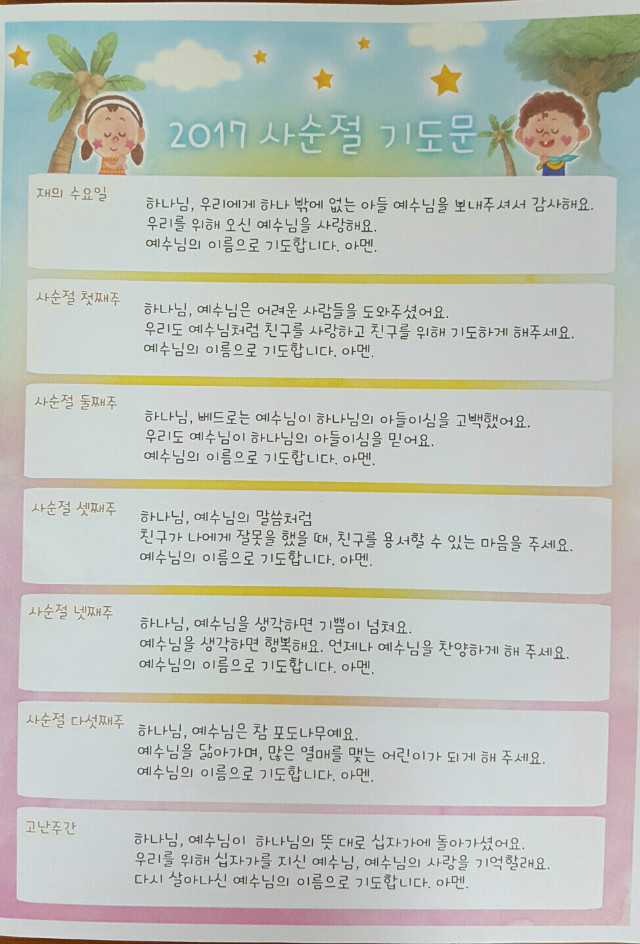 2017 사순절 기도문
재의 수요일
하나님, 우리에게 하나 밖에 없는 아들 예수님을 보내주셔서 감사해요.
우리를 위해 오신 예수님을 사랑해요.
예수님의 이름으로 기도합니다. 아멘.
사순절 첫째주
하나님, 예수님은 어려운 사람들을 도와주셨어요.
우리도 예수님처럼 친구를 사랑하고 친구를 위해 기도하게 해주세요.
예수님의 이름으로 기도합니다. 아멘.
사순절 둘째주
하나님, 베드로는 예수님이 하나님의 아들이심을 고백했어요.
우리도 예수님이 하나님의 아들이심을 믿어요.
예수님의 이름으로 기도합니다. 아멘.
사순절 셋째주
하나님, 예수님의 말씀처럼
친구가 나에게 잘못을 했을 때, 친구를 용서할 수 있는 마음을 주세요.
예수님의 이름으로 기도합니다. 아멘.
사순절 넷째주
하나님, 예수님을 생각하면 기쁨이 넘쳐요.
예수님을 생각하면 행복해요. 언제나 예수님을 찬양하게 해 주세요.
예수님의 이름으로 기도합니다. 아멘.
사순절 다섯째주
하나님, 예수님은 참 포도나무예요.
예수님을 닮아가며, 많은 열매를 맺는 어린이가 되게 해 주세요.
예수님의 이름으로 기도합니다. 아멘.
고난주간
하나님, 예수님이 하나님의 뜻 대로 십자가에 돌아가셨어요.
우리를 위해 십자가를 지신 예수님, 예수님의 사랑을 기억할래요.
다시 살아나신 예수님의 이름으로 기도합니다. 아멘.